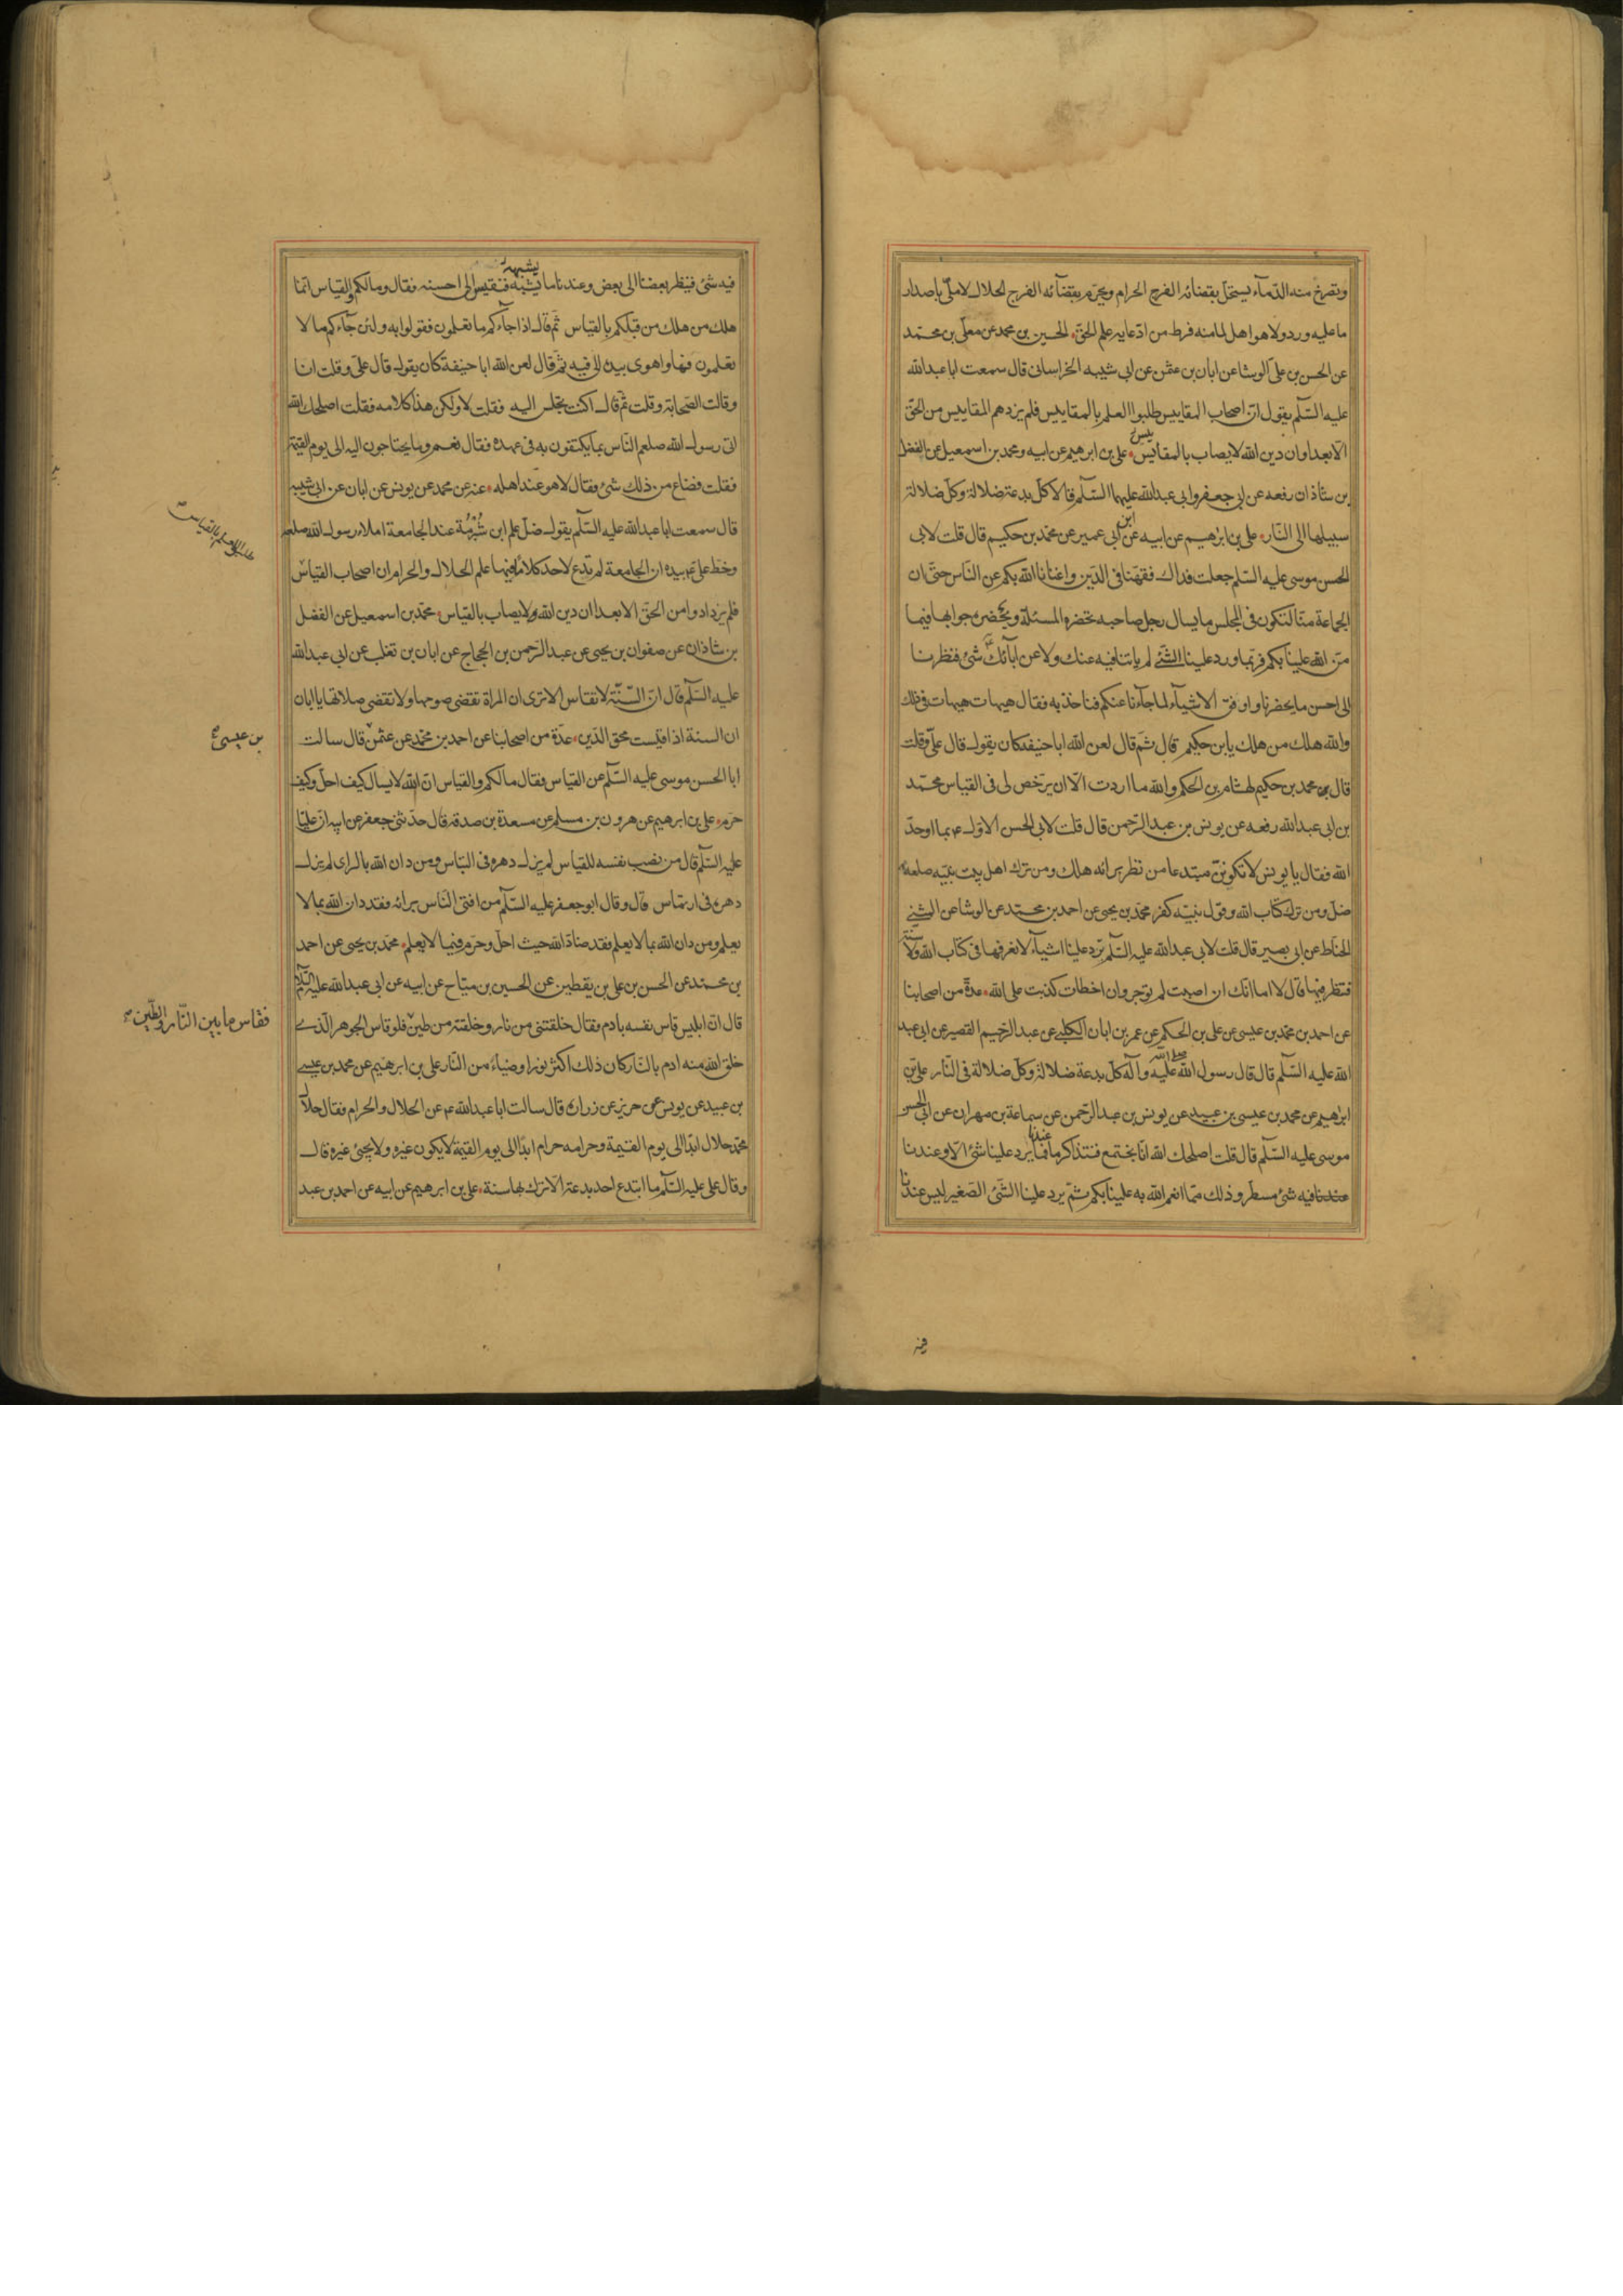 وتصرخ منه الدماء يستحل بقضائه الفرج الحرام ويحرم بقضائه الفرج الحلال لا ملئ باصدار
ما عليه ورد ولا هو اهل لما منه فرط من ادعائه علم الحق الحسين بن محمد عن معلى بن محمد
عن الحسن بن على الوشا عن ابان بن عثمن عن ابى شيبه الخراسانى قال سمعت ابا عبدالله
عليه السلم يقول ان اصحاب المقاييس طلبوا العلم بالمقاييس فلم يزدهم المقاييس من الحق
الا بعدا وان دين الله لا يصاب بالمقايس على بن ابرهيم عن ابيه ومحمد بن اسمعيل عن الفضل
بن شاذان رفعه عن ابى جعفر وابى عبدالله عليهما السلم قالا كل بدعة ضلالة وكل ضلالة
سبيلها الى النار على بن ابرهيم عن ابيه عن ابن ابى عمير عن محمد بن حكيم قال قلت لابى
الحسن موسى عليه السلم جعلت فداك فقهنا فى الدين واغنانا الله بكم عن الناس حتى ان
الجماعة منا لتكون فى المجلس ما يسال رجل صاحبه تحضره المسئلة ويحضره جوابها فيما
من الله علينا بكم فربما ورد علينا الشئ لم ياتنا فيه عنك ولا عن ابائك شئ فنظرنا
الى احسن ما يحضرنا واوفق الاشياء لما جاءنا عنكم فناخذ به فقال هيهات هيهات فى ذلك
والله هلك من هلك يابن حكيم قال ثم قال لعن الله ابا حنيفه كان يقول قال على وقلت
قال محمد بن حكيم لهشام بن الحكم والله ما اردت الا ان يرخص لى فى القياس محمد
بن ابى عبدالله رفعه عن يونس بن عبد الرحمن قال قلت لابى الحسن الاول ع بما اوحد
الله فقال يا يونس لا تكونن مبتدعا من نظر برائه هلك ومن ترك اهل بيت نبيه صلعم
ضل ومن ترك كتاب الله وقول نبيه كفر محمد بن يحيى عن احمد بن محمد عن الوشا عن المثنى
الحناط عن ابى بصير قال قلت لابى عبدالله عليه السلم ترد علينا اشياء لا نعرفها فى كتاب الله ولا سنة
فننظر فيها قال لا اما انك ان اصبت لم توجر وان اخطات كذبت على الله عدة من اصحابنا
عن احمد بن محمد بن عيسى عن على بن الحكم عن عمر بن ابان الكلبى عن عبد الرحيم القصير عن ابى عبد
الله عليه السلم قال قال رسول الله صلى الله عليه وآله كل بدعة ضلالة وكل ضلالة فى النار على بن
ابرهيم عن محمد بن عيسى بن عبيد عن يونس بن عبد الرحمن عن سماعة بن مهران عن ابى الحسن
موسى عليه السلم قال قلت اصلحك الله انا نجتمع فنتذاكر ما عندنا فما يرد علينا شئ الا وعندنا
فيه شئ مسطر وذلك مما انعم الله به علينا بكم ثم يرد علينا الشئ الصغير ليس عندنا
فيه
فيه شئ فينظر بعضنا الى بعض وعندنا ما يشبه يشبهه فنقيس الى احسنه فقال وما لكم والقياس انما
هلك من هلك من قبلكم بالقياس ثم قال اذا جاءكم ما تعلمون فقولوا به ولئن جاءكم ما لا
تعلمون فها واهوى بيده الى فيه ثم قال لعن الله ابا حنيفة كان يقول قال على وقلت انا
وقالت الصحابة وقلت ثم قال اكنت تجلس اليه فقلت لا ولكن هذا كلامه فقلت اصلحك الله
اتى رسول الله صلعم الناس بما يكتفون به فى عهده فقال نعم وما يحتاجون اليه الى يوم القيمة
فقلت فضاع من ذلك شئ فقال لا هو عند اهله عنه عن محمد عن يونس عن ابان عن ابى شيبه
قال سمعت ابا عبدالله عليه السلم يقول ضل علم ابن شبرمة عند الجامعة املاء رسول الله صلعم
وخط على ع بيده ان الجامعة لم تدع لاحد كلاما فيها علم الحلال والحرام ان اصحاب القياس
طلبوا العلم بالقياس
فلم يزدادوا من الحق الا بعدا ان دين الله ولا يصاب بالقياس محمد بن اسمعيل عن الفضل
بن شاذان عن صفوان بن يحيى عن عبد الرحمن بن الحجاج عن ابان بن تغلب عن ابى عبدالله
عليه السلم قال ان السنة لا تقاس الا ترى ان المراة تقضى صومها ولا تقضى صلاتها يا ابان
ان السنة اذا قيست محق الدين عدة من اصحابنا عن احمد بن محمد عن عثمن قال سالت
بن عيسى
ابا الحسن موسى عليه السلم عن القياس فقال ما لكم والقياس ان الله لا يسال كيف احل وكيف
حرم على بن ابرهيم عن هرون بن مسلم عن مسعدة بن صدقه قال حدثنى جعفر عن ابيه ان عليا
عليه السلم قال من نصب نفسه للقياس لم يزل دهره فى التباس ومن دان الله بالراى لم يزل
دهره فى ارتماس قال وقال ابو جعفر عليه السلم من افتى الناس برائه فقد دان الله بما لا
يعلم ومن دان الله بما لا يعلم فقد ضاد الله حيث احل وحرم فيما لا يعلم محمد بن يحيى عن احمد
بن محمد عن الحسن بن على بن يقطين عن الحسين بن مياح عن ابيه عن ابى عبدالله عليه السلم
قال ان ابليس قاس نفسه بادم فقال خلقتنى من نار وخلقته من طين فلو قاس الجوهر الذى
فقاس ما بين النار والطين
خلق الله منه ادم بالنار كان ذلك اكثر نورا وضياء من النار على بن ابرهيم عن محمد بن عيسى
بن عبيد عن يونس عن حريز عن زرارة قال سالت ابا عبدالله ع عن الحلال والحرام فقال حلال
محمد حلال ابدا الى يوم القيمة وحرامه حرام ابدا الى يوم القيمة لا يكون غيره ولا يجئ غيره قال
وقال على عليه السلم ما ابتدع احد بدعة الا ترك بها سنة على بن ابرهيم عن ابيه عن احمد بن عبد